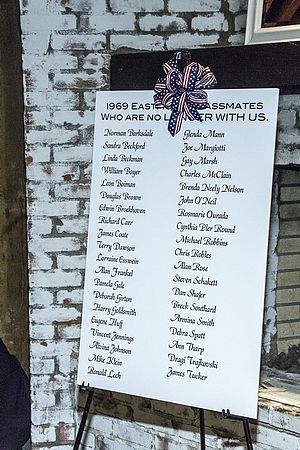 1969 EASTE CLASSMATES
WHO ARE NO LONGER WITH US.
Norman Barksdale
Sandra Beckford
Linda Beckman
William Boyer
Leon Boiman
Douglas Brown
Edwin Broekhoven
Richard Carr
James Coste
Terry Dawson
Lorraine Esswein
Alan Frankel
Pamela Gale
Deborah Gorton
Harry Goldsmith
Eugene Huff
Vincent Jennings
Alvina Johnson
Mike Klein
Ronald Lech
Glenda Mann
Joe Margiotti
Gay Marsh
Charles McClain
Brenda Neely Nelson
John O'Neil
Rosmarie Ourada
Cynthia Pler Round
Michael Robbins
Chris Robles
Alan Rose
Steven Schakett
Dan Shafer
Breck Southard
Armina Smith
Debra Spatt
Ann Tharp
Dragi Trajkovski
James Tucker